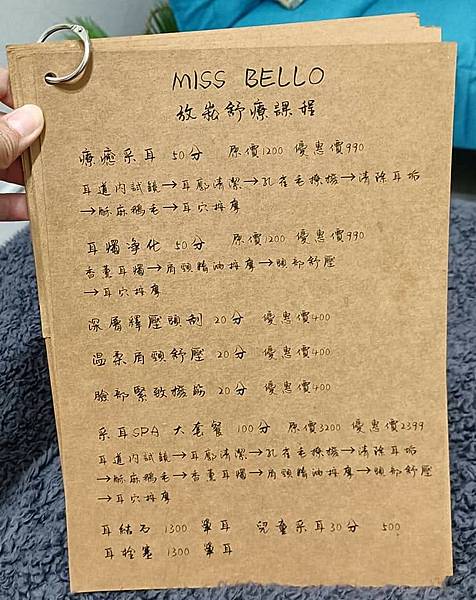 MISS BELLO
放崧舒療課程
療癒采耳 50分 原價1200 優惠價990
耳道內試鏡→耳廓清潔→孔雀毛撩撥→清除耳垢
→酥麻鵝毛→耳穴按摩
耳燭淨化 50分 原價1200 優惠價990
香薰耳燭→肩頸精油按摩→頭部舒壓
→耳穴按摩
深層釋壓頭刮 20分 優惠價400
温柔肩頸舒壓 20分 優惠價400
臉部緊致撥筋 20分 優惠價400
采耳SPA 大套餐 100分 原價3200 優惠價2399
耳道內試鏡→耳廓清潔→孔雀毛撩撥→清除耳垢
→酥麻鵝毛→香薰耳燭→肩頸精油按摩→頭部舒壓
→耳穴按摩
耳結石 1300 單耳 兒童采耳30分 500
耳栓塞 1300 單耳